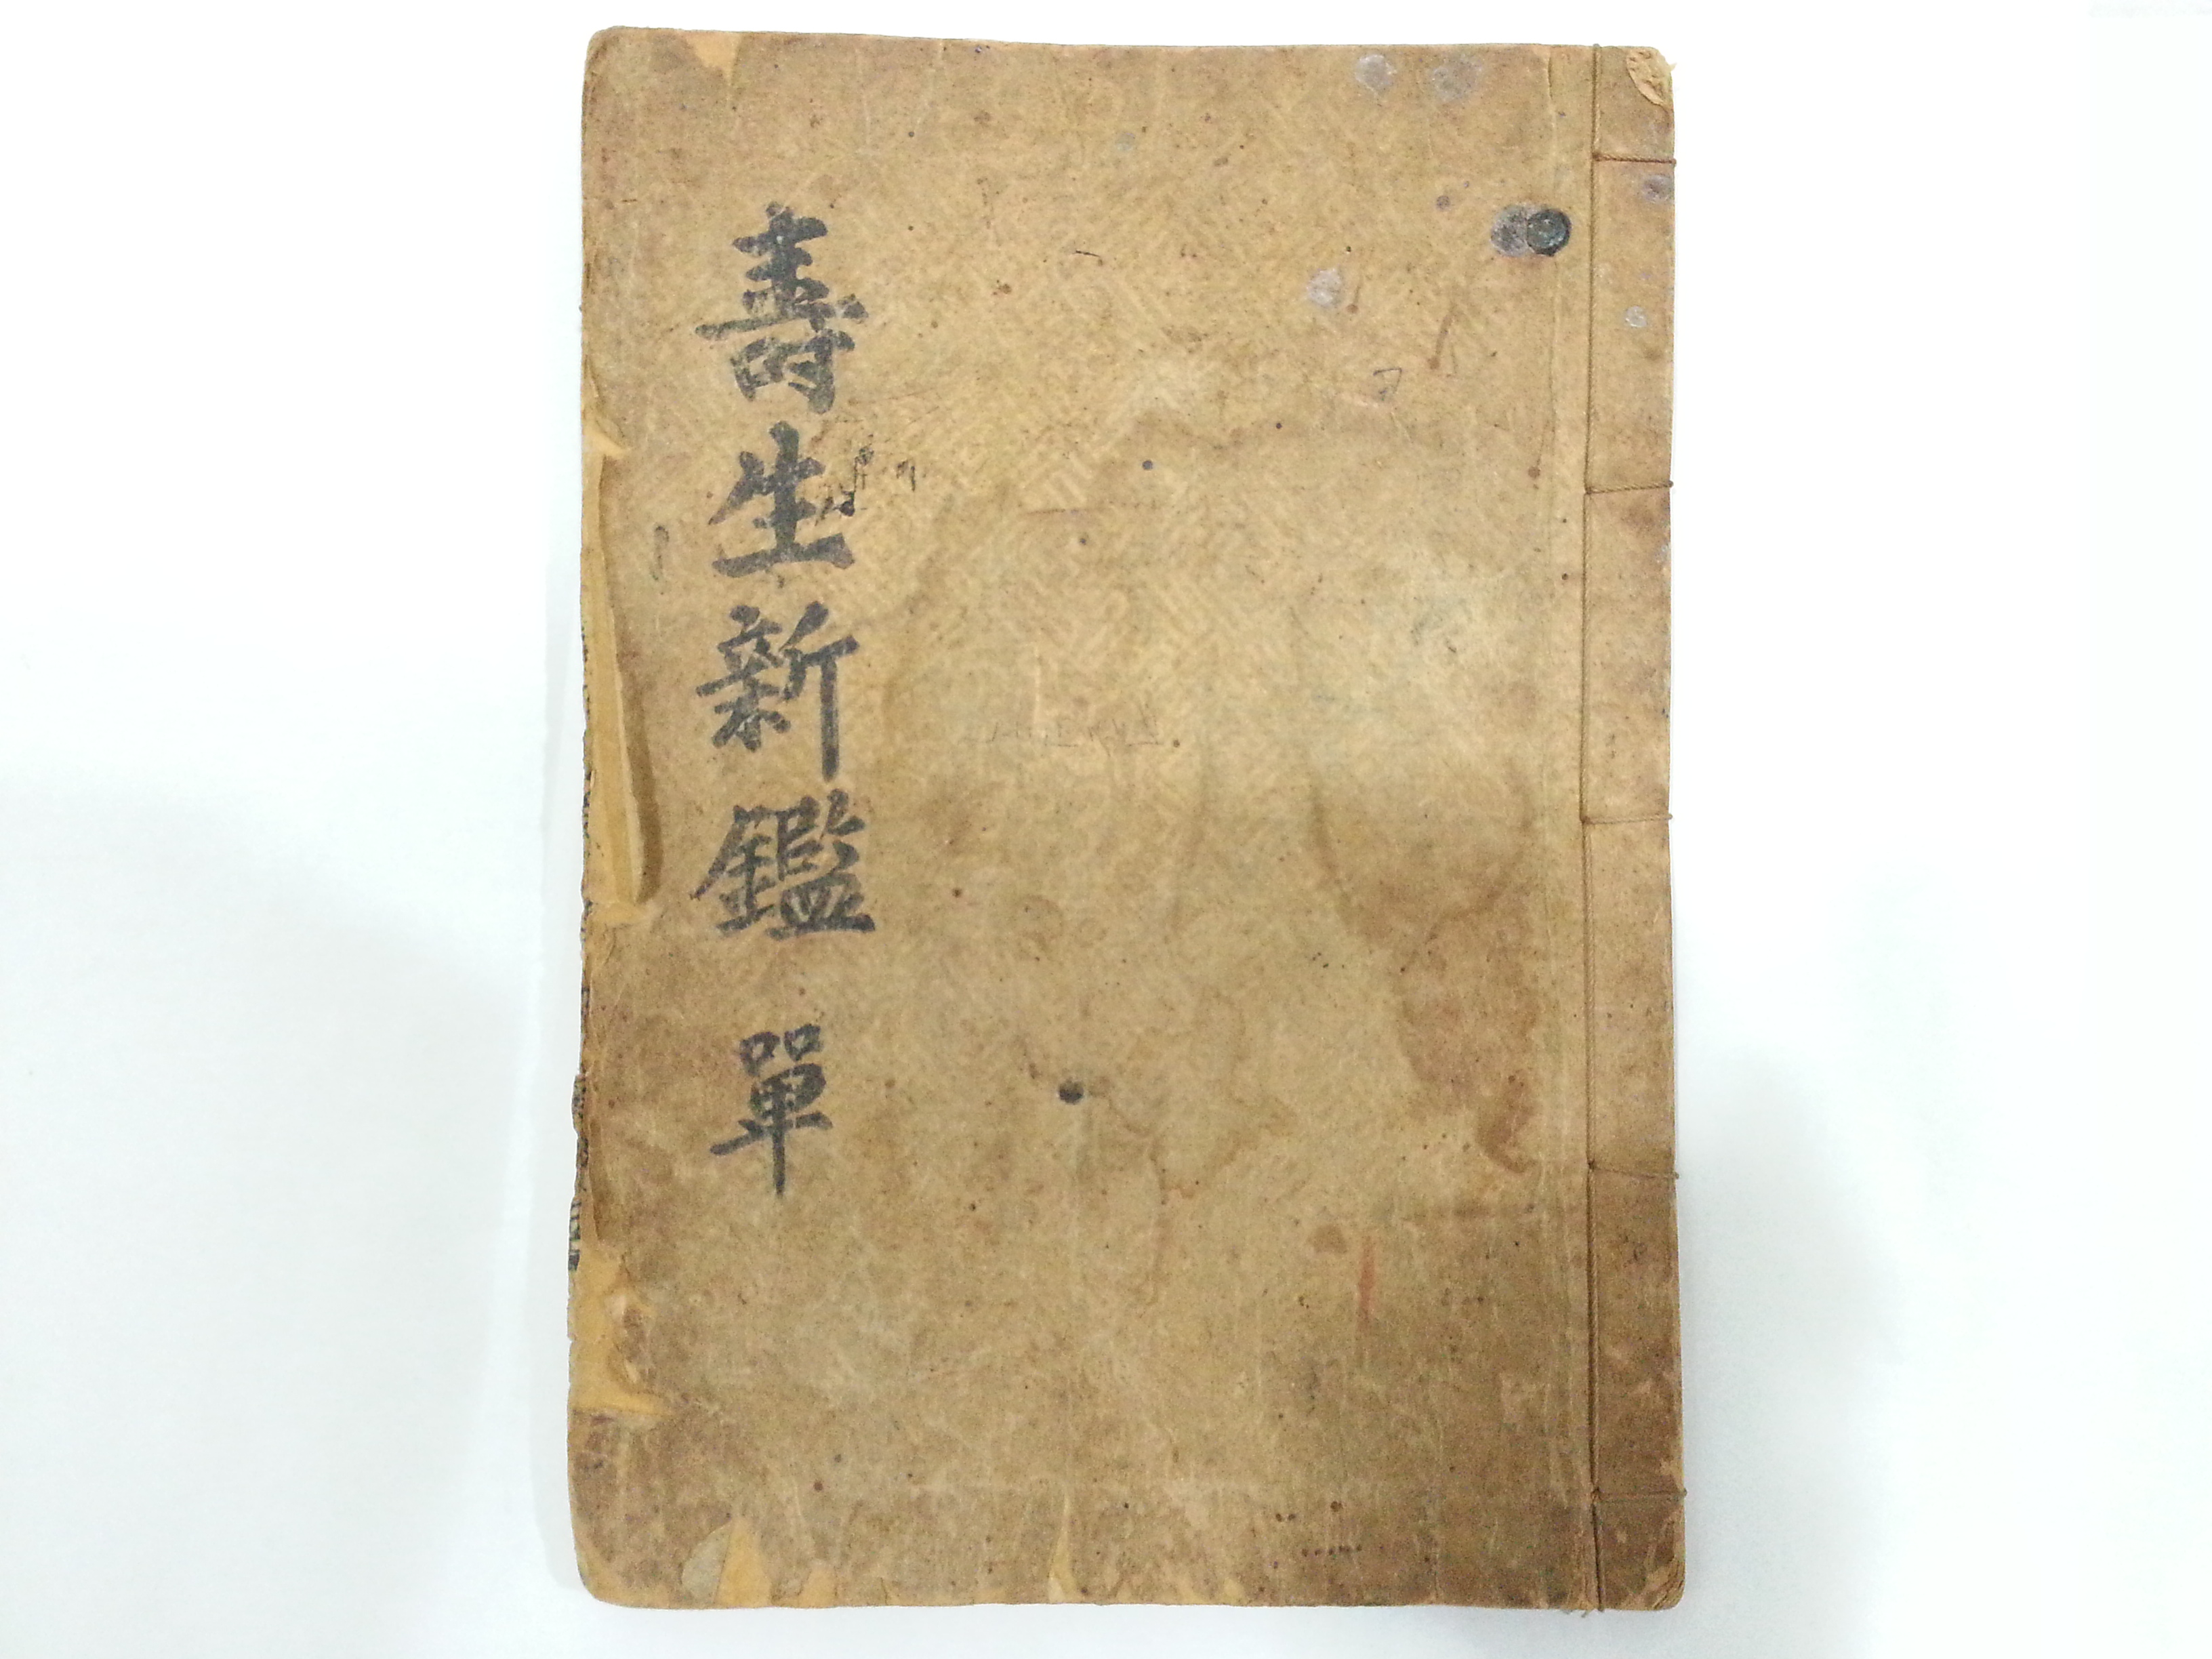 壽生新鑑 單